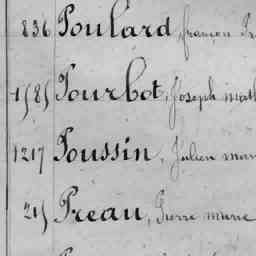 836 Poulard, françois
1585 Pourbot, Joseph math
1217 Poussin, Julien marie
215 Preau, Pierre marie